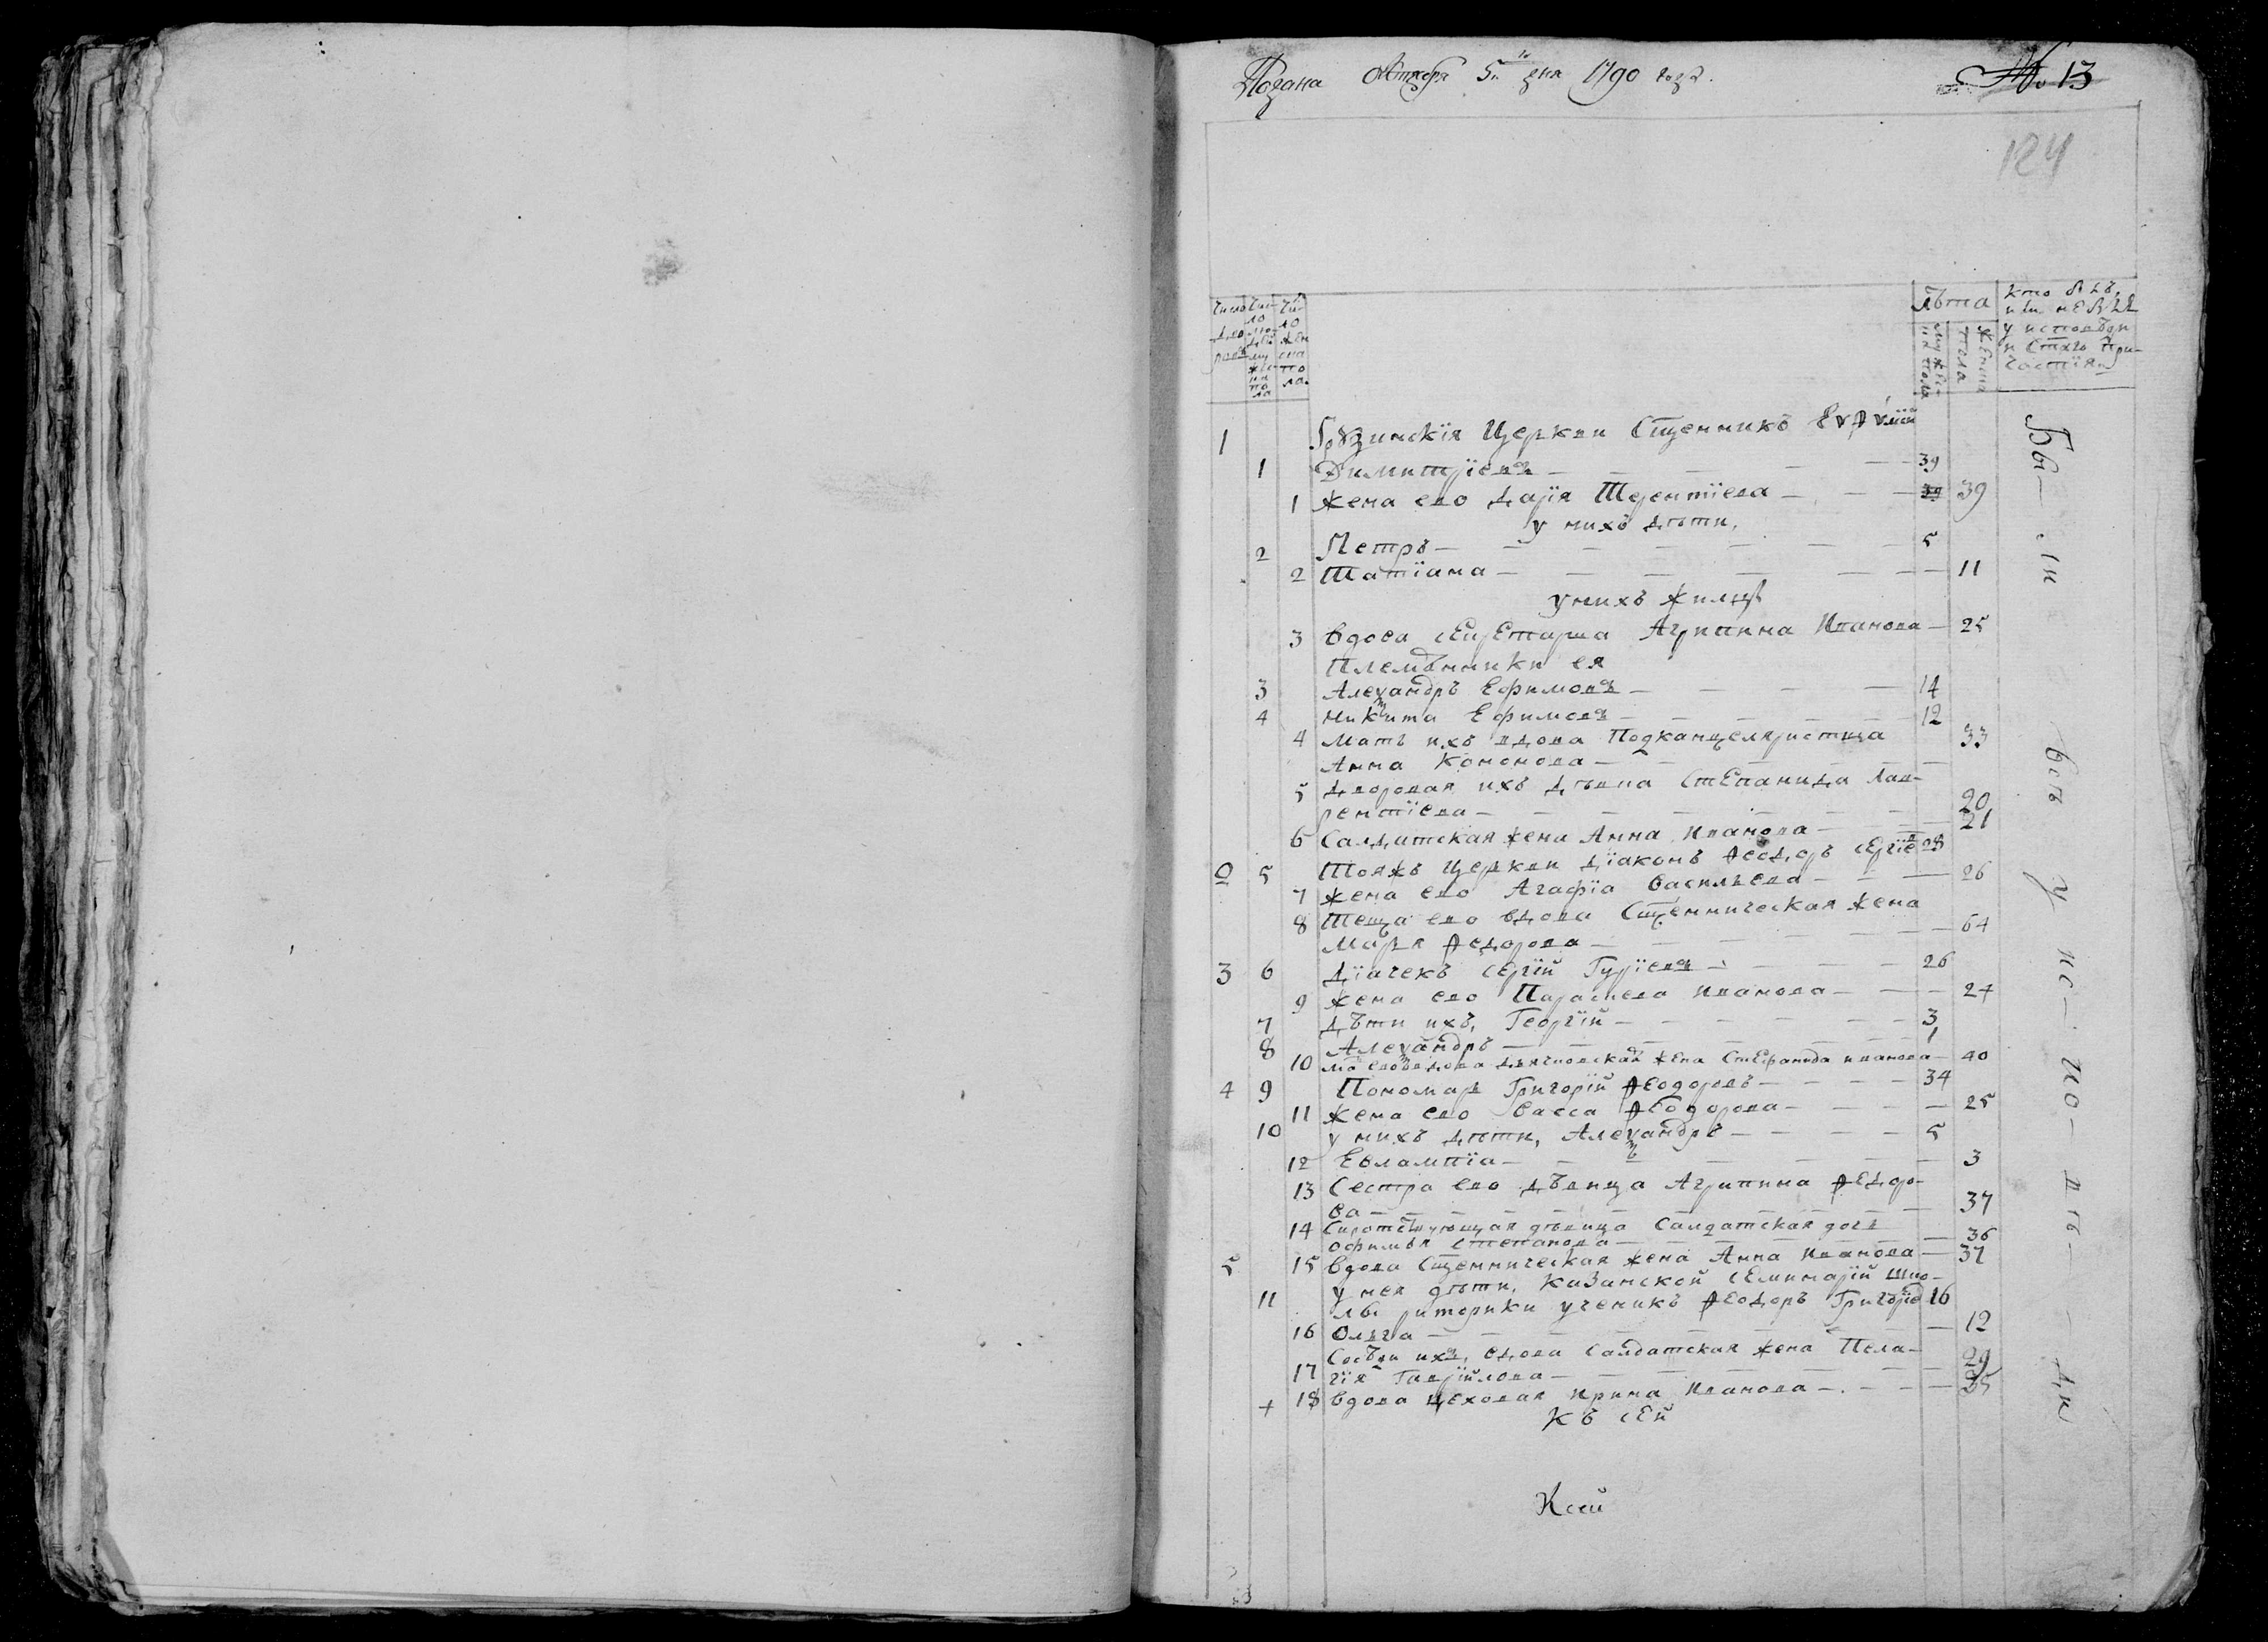 Подана октября 5г дня 1790 года.
№ 13
124
Число дворовъ
Число людей мужеска пола
Число женска пола
Лѣта
мужеска пола
женска пола
кто былъ, или не былъ у исповѣди и Стыхъ причастія
1 Грузинскія Церкви Сщенникъ Евѳумїй
1 Димитрїевъ — 39
1 жена ево Дарїя Терентїева — 39 39
у нихъ дѣти,
2 Петръ — 5
2 Татїана — 11
у нихъ жилцы
3 вдова секретарша Агрипина Иванова — 25
Племѣнники ея
3 Алеѯандръ Ефимовъ — 14
4 Никита Ефимовъ — 12
4 мать ихъ вдова Подканцеляристша 33
Анна Кононова —
5 дворовая ихъ дѣвка Степанида Лав-
рентїева — 20
6 Салдатская жена Анна Иванова — 21
2 5 Тояжъ Церкви дїаконъ Ѳеодоръ сергїев 28
7 жена ево Агафїа Васильева — 26
8 Теща ево вдова Сщенническая жена
Марья Ѳедорова — 64
3 6 Дїачекъ сергїй Гурїевъ — 26
9 жена ево Параскева Иванова — 27
7 дѣти ихъ, Георгїй — 3
8 Алеѯандръ — 1
10 мать ево вдова дьячковская жена Стефанида иванова — 40
4 9 Пономарь Григорїй Ѳеодоровъ — 34
11 жена ево Васса Ѳеодорова — 25
10 у нихъ дѣти, Алеѯандръ — 5
12 Евлампїа — 3
13 Сестра ево дѣвица Агрипина Ѳедоро-
ва — 37
14 Сиротствующая дѣвица Салдатская дочь
офимья степанова — 36
5 15 вдова Сщенническая жена Анна Иванова — 37
у нея дѣти, Казанской семинарїй шко-
11 лы риторики ученикъ Ѳеодоръ Григорїев 16
16 Ольга — 12
Сосѣди ихъ, вдова Салдатская жена Пела-
17 гїя Гаврїилова — 29
+ 18 вдова цеховая Ирина Иванова — 35
Къ сей
Ксей
Бы-ли всѣ у ис-по-вѣ-ди